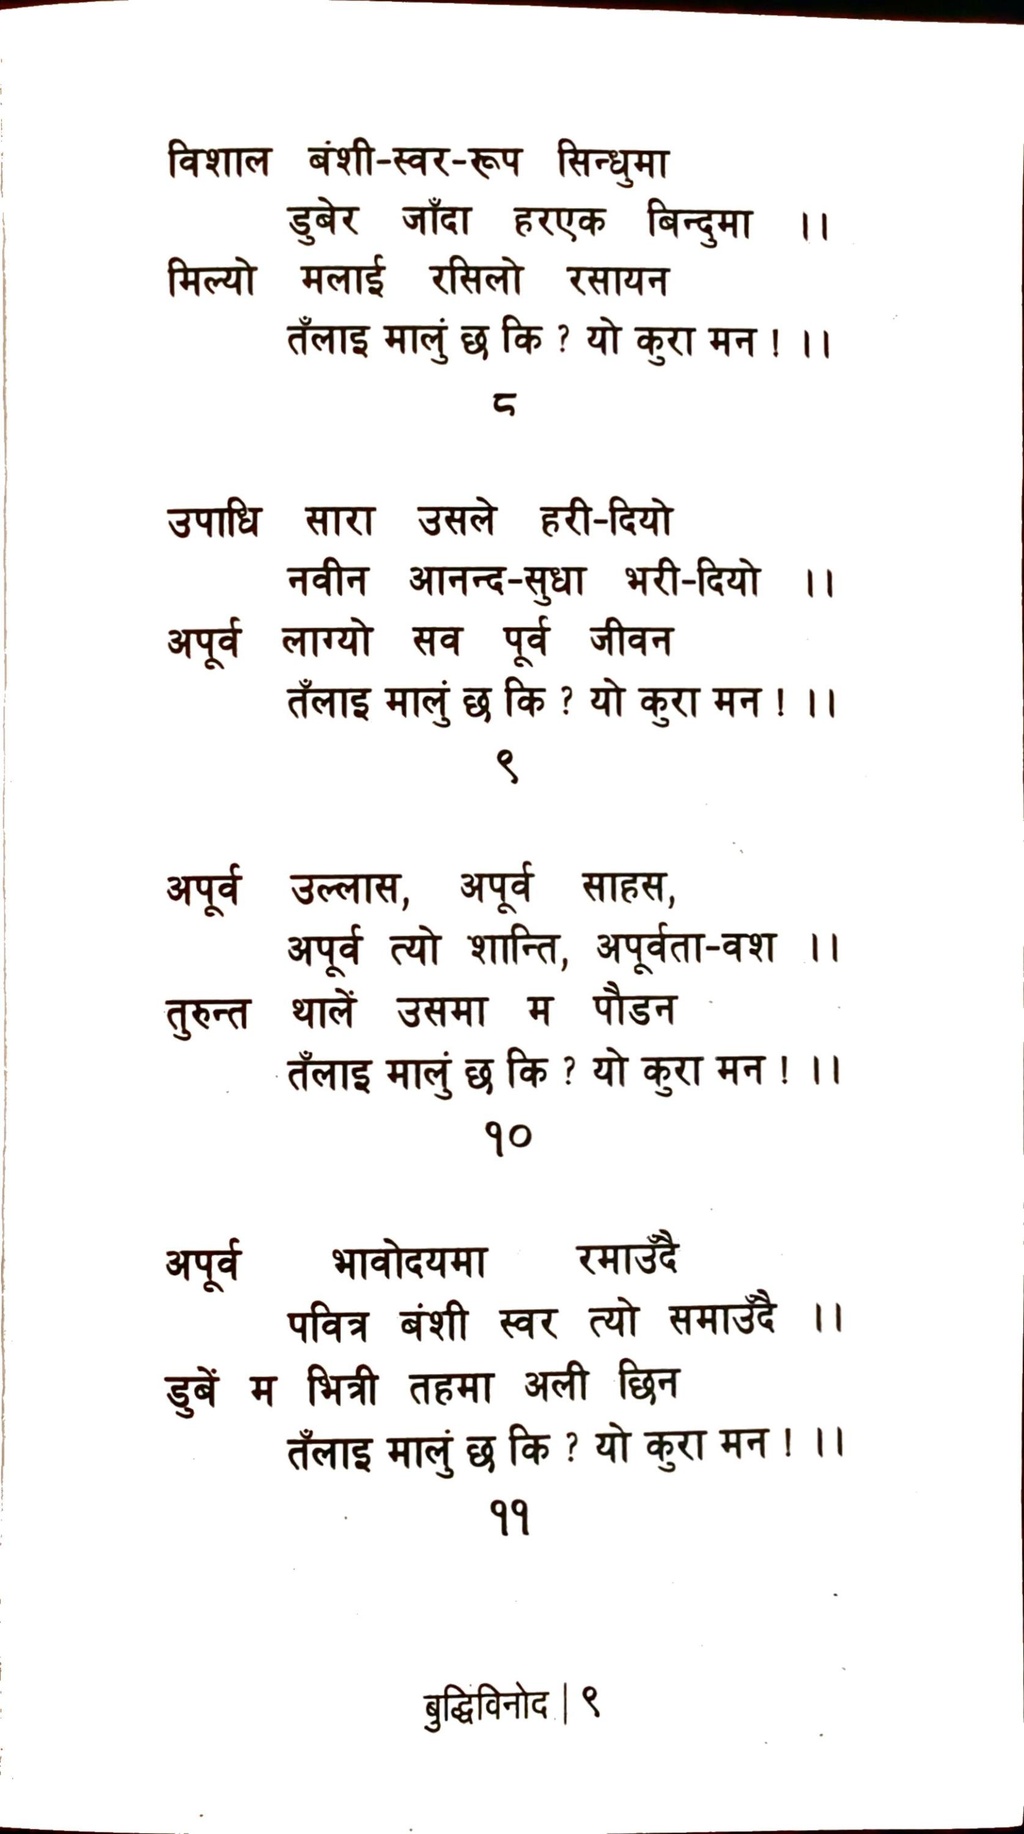 विशाल बंशी-स्वर-रूप सिन्धुमा
डुबेर जाँदा हरएक बिन्दुमा ।।
मिल्यो मलाई रसिलो रसायन
तँलाइ मालुं छ कि ? यो कुरा मन ! ।।
८
उपाधि सारा उसले हरी-दियो
नवीन आनन्द-सुधा भरी-दियो ।।
अपूर्व लाग्यो सव पूर्व जीवन
तँलाइ मालुं छ कि ? यो कुरा मन ! ।।
९
अपूर्व उल्लास, अपूर्व साहस,
अपूर्व त्यो शान्ति, अपूर्वता-वश ।।
तुरुन्त थालें उसमा म पौडन
तँलाइ मालुं छ कि ? यो कुरा मन ! ।।
१०
अपूर्व भावोदयमा रमाउँदै
पवित्र बंशी स्वर त्यो समाउँदै ।।
डुबें म भित्री तहमा अली छिन
तँलाइ मालुं छ कि ? यो कुरा मन ! ।।
११
बुद्धिविनोद | ९